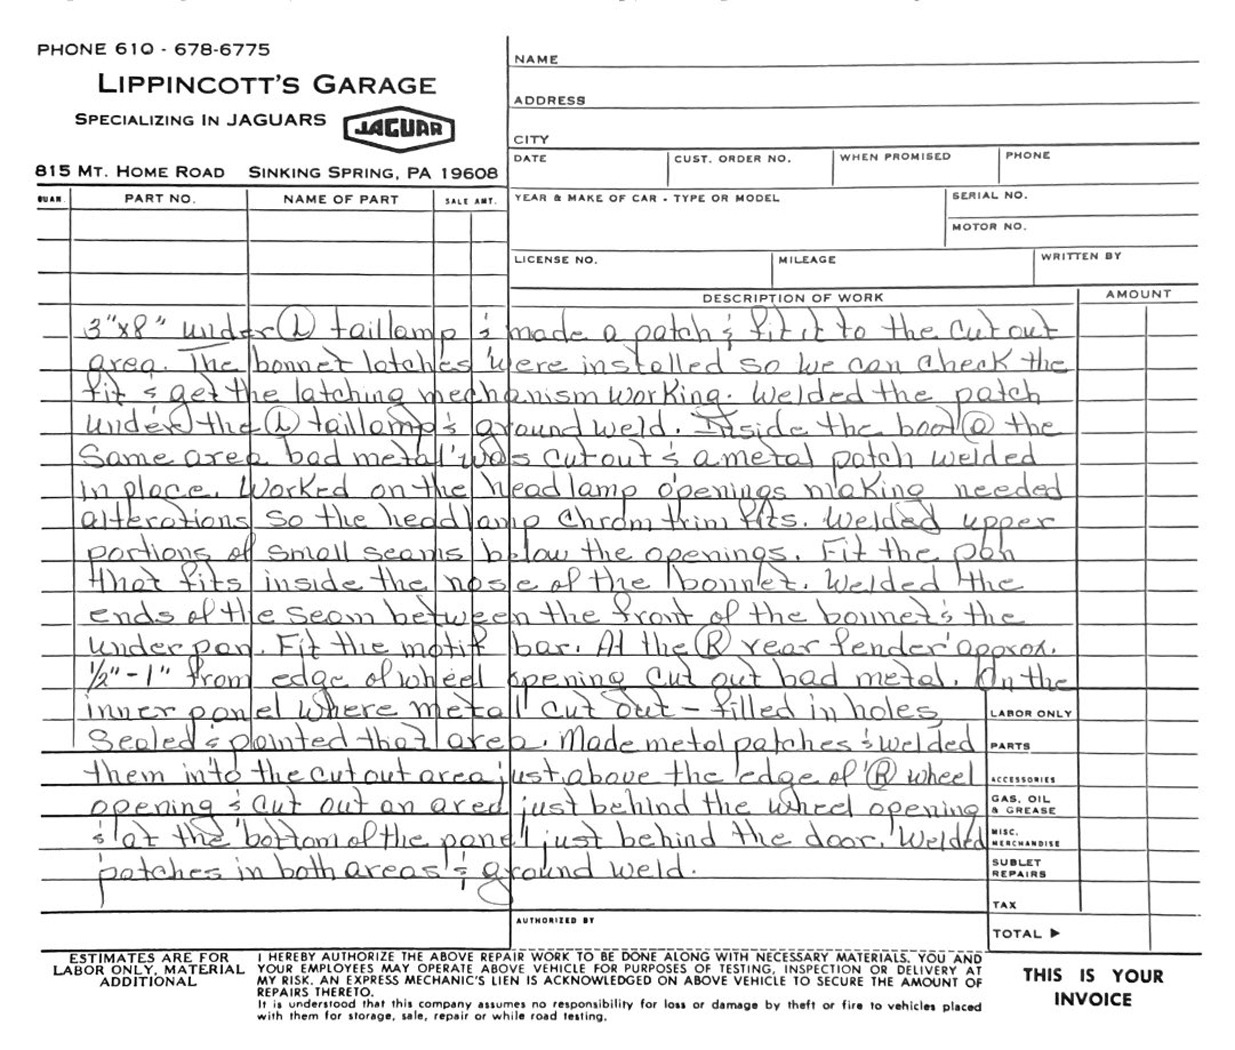 PHONE 610 - 678-6775
LIPPINCOTT'S GARAGE
SPECIALIZING IN JAGUARS JAGUAR
815 MT. HOME ROAD SINKING SPRING, PA 19608
NAME
ADDRESS
CITY
DATE CUST. ORDER NO. WHEN PROMISED PHONE
QUAN. PART NO. NAME OF PART SALE AMT.
YEAR & MAKE OF CAR - TYPE OR MODEL SERIAL NO.
MOTOR NO.
LICENSE NO. MILEAGE WRITTEN BY
DESCRIPTION OF WORK AMOUNT
3"x8" under Ⓛ taillamp & made a patch & fit it to the cut out
area. The bonnet latches were installed so we can check the
fit & get the latching mechanism working. Welded the patch
under the Ⓛ taillamp & ground weld. Inside the boot @ the
Same area bad metal was cut out & a metal patch welded
in place. Worked on the headlamp openings making needed
alterations so the headlamp chrom trim fits. Welded upper
portions of small seams below the openings. Fit the pan
that fits inside the nose of the bonnet. Welded the
ends of the seam between the front of the bonnet & the
under pan. Fit the motif bar. At the Ⓡ rear fender approx.
1/2" - 1" from edge of wheel opening cut out bad metal. On the
inner panel where metal cut out - filled in holes,
Sealed & painted that area. Made metal patches & welded
them into the cut out area just above the edge of Ⓡ wheel
opening & cut out an area just behind the wheel opening
& at the bottom of the panel just behind the door. Welded
patches in both areas & ground weld.
LABOR ONLY
PARTS
ACCESSORIES
GAS, OIL
& GREASE
MISC.
MERCHANDISE
SUBLET
REPAIRS
TAX
AUTHORIZED BY
TOTAL ▶
ESTIMATES ARE FOR
LABOR ONLY, MATERIAL
ADDITIONAL
I HEREBY AUTHORIZE THE ABOVE REPAIR WORK TO BE DONE ALONG WITH NECESSARY MATERIALS. YOU AND
YOUR EMPLOYEES MAY OPERATE ABOVE VEHICLE FOR PURPOSES OF TESTING, INSPECTION OR DELIVERY AT
MY RISK. AN EXPRESS MECHANIC'S LIEN IS ACKNOWLEDGED ON ABOVE VEHICLE TO SECURE THE AMOUNT OF
REPAIRS THERETO.
It is understood that this company assumes no responsibility for loss or damage by theft or fire to vehicles placed
with them for storage, sale, repair or while road testing.
THIS IS YOUR
INVOICE